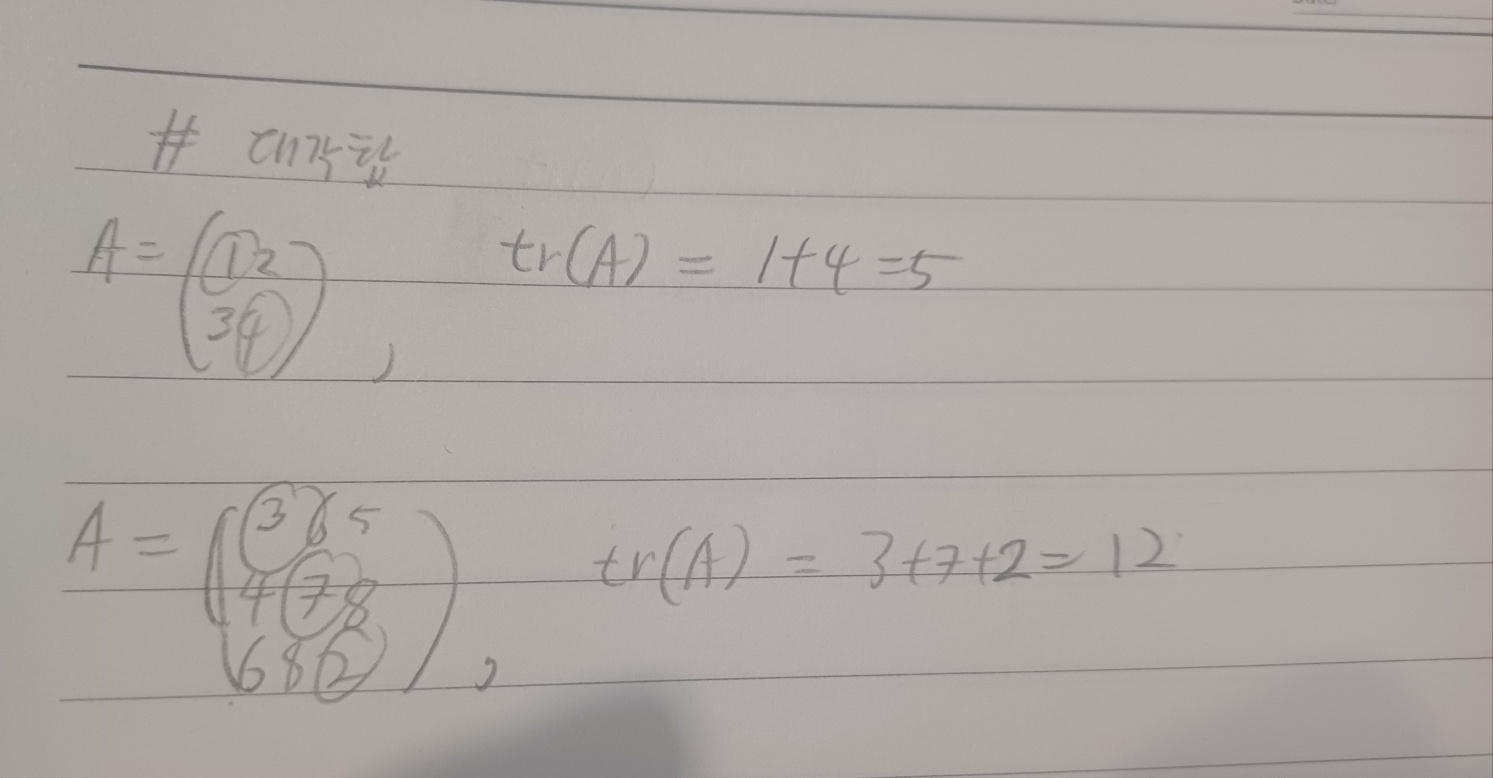 # 대각합
A = (1 2
3 4) ,
tr(A) = 1+4=5
A = (3 6 5
4 7 8
6 8 2) ,
tr(A) = 3+7+2=12